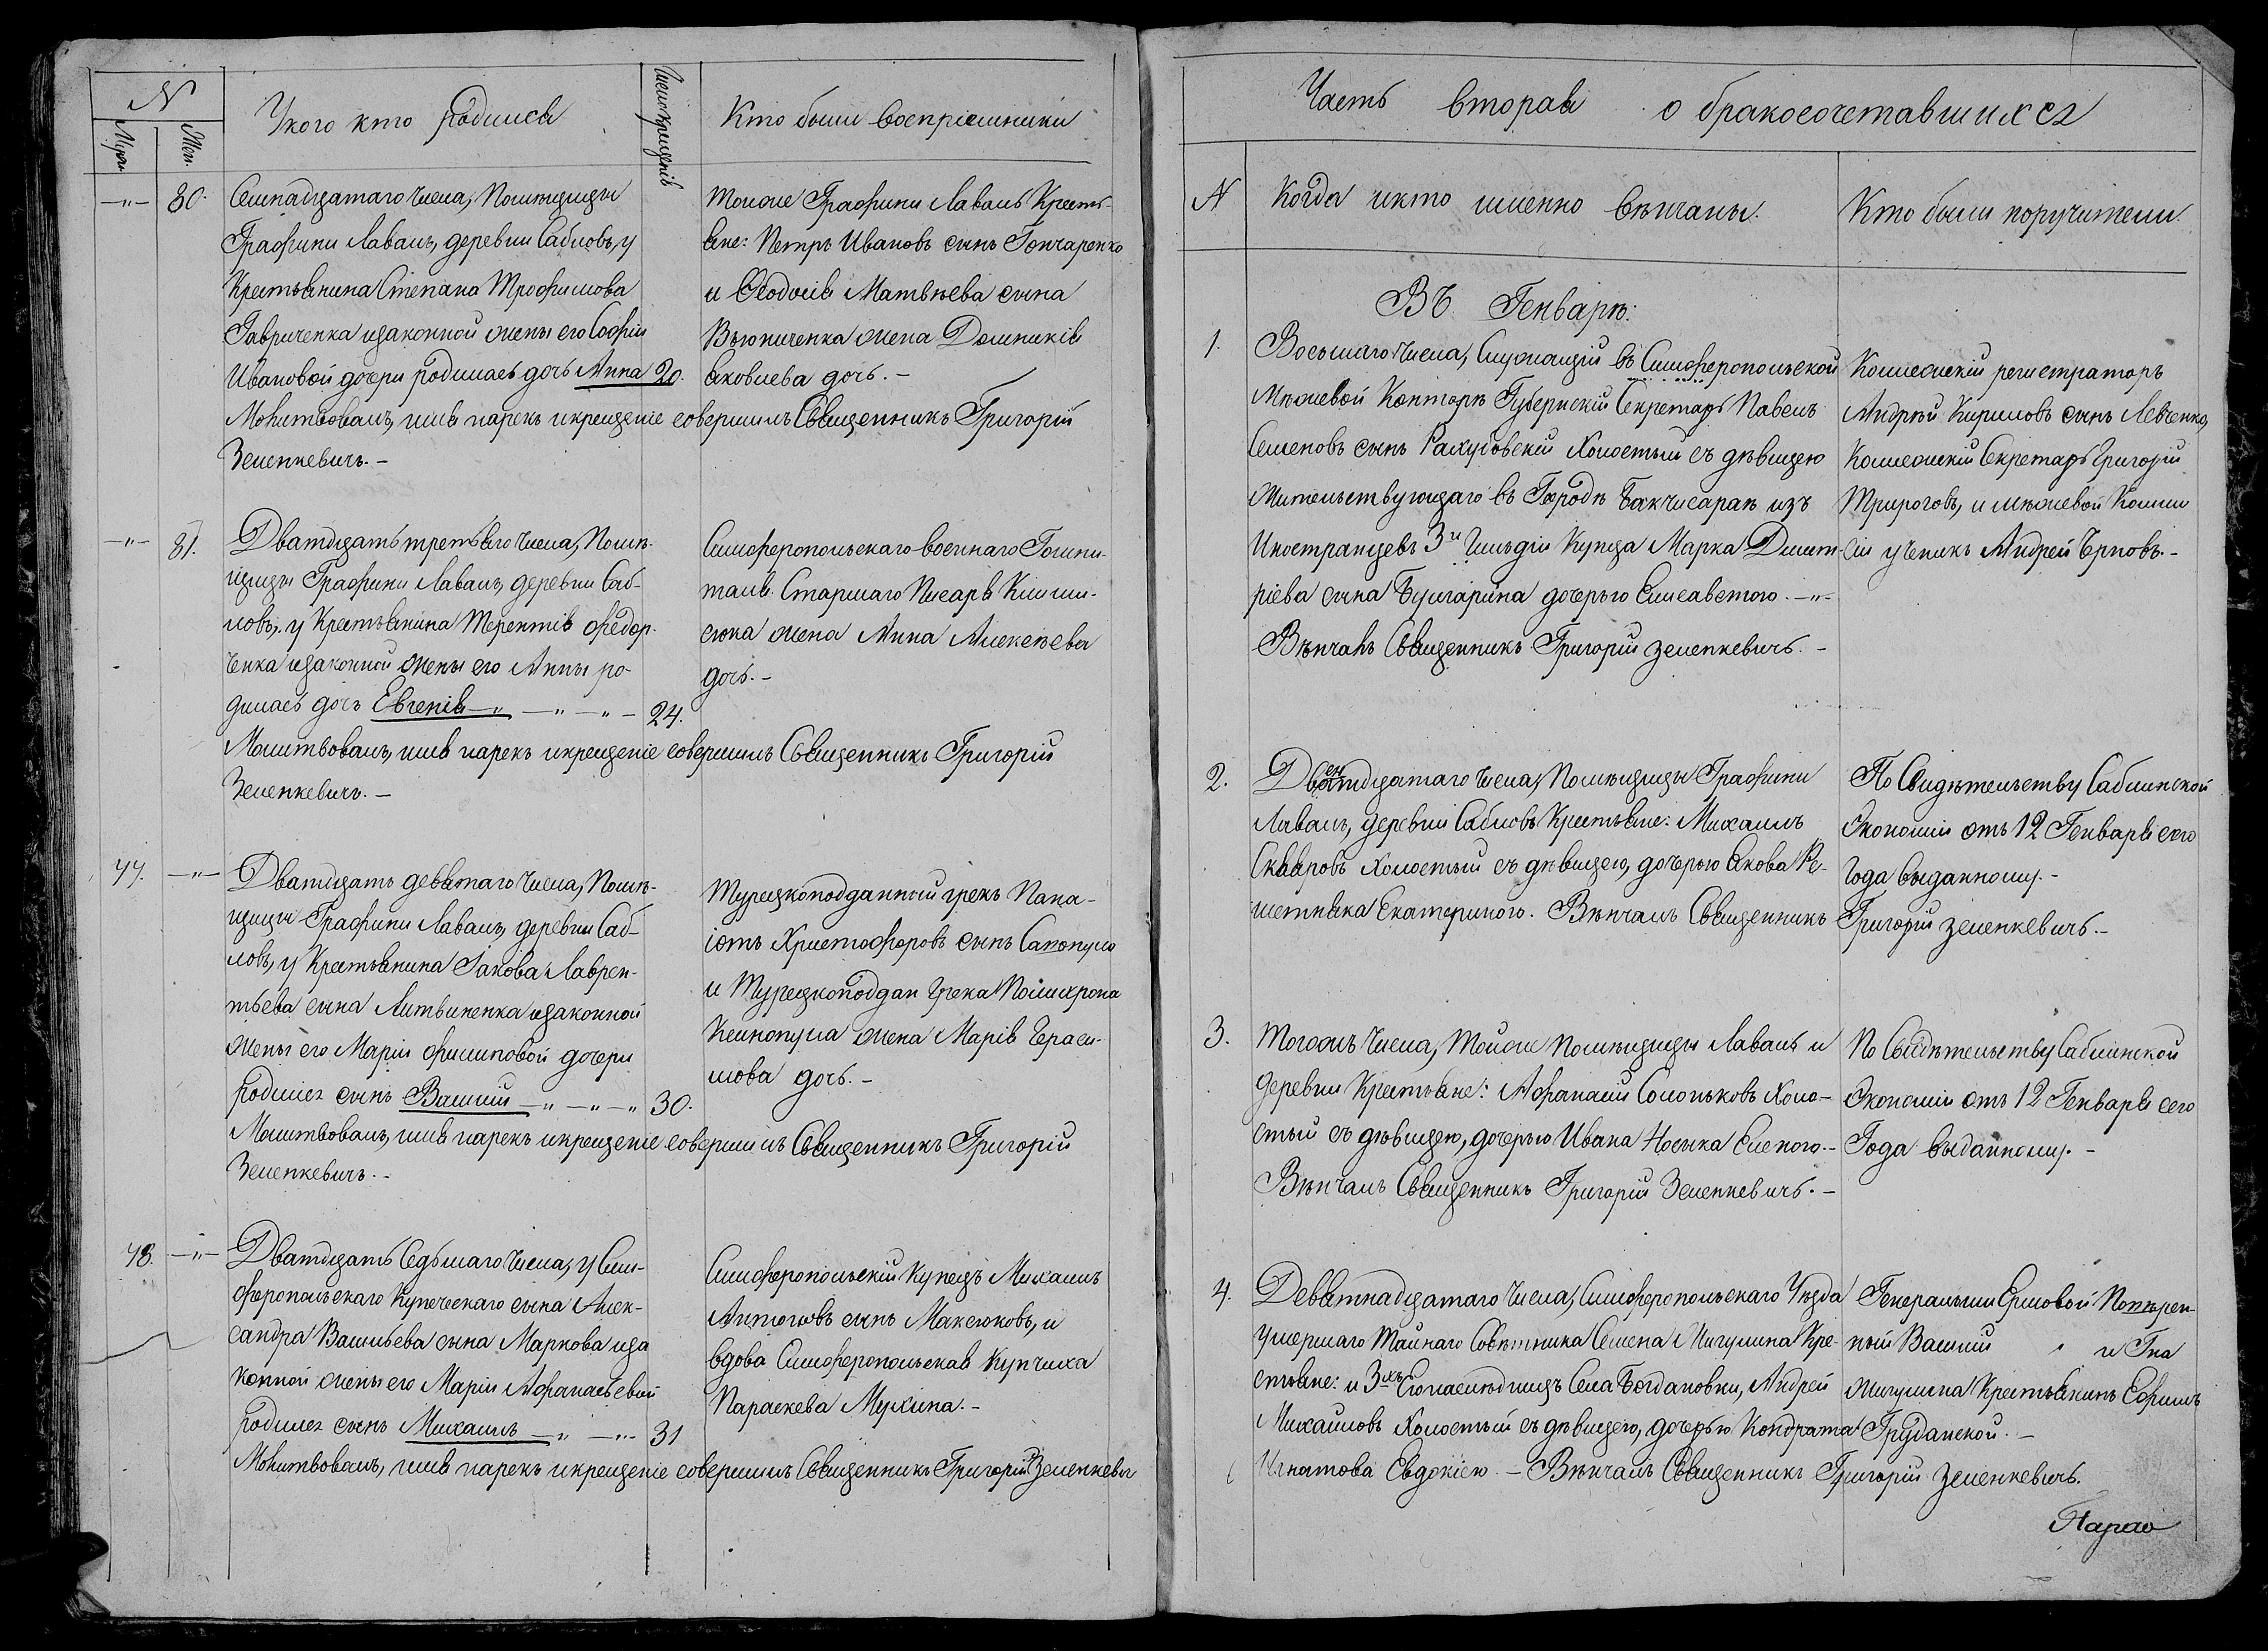 N
Муж.
Жен.
У кого кто родился
Число крещенія
Кто были воспріемники
—"— 80. Семнадцатаго числа, Помѣщицы
Графини Лаваль, деревни Сабловъ, у
Крестьянина Степана Трофимова
Гавриченка изаконной жены его Софіи
Ивановой дочери родилась дочь Анна 20.
Молитвовалъ, имя нарекъ икрещеніе совершилъ Священникъ Григорій
Зеленкевичъ. —
Тоиже Графини Лаваль Кресть-
яне: Петръ Ивановъ сынъ Гончаренко
и Ѳеодосія Матвѣева сына
Вьюниченка жена Домникія
Яковлева дочь. —
—"— 81. Дватцать третьяго числа, Помѣ-
щицы Графини Лаваль, деревни Саб-
ловъ, у Крестьянина Терентія Федор-
ченка изаконной жены его Анны ро-
дилась дочь Евгенія —"— —"— —"— 24.
Молитвовалъ, имя нарекъ икрещеніе совершилъ Священникъ Григорій
Зеленкевичъ. —
Симферопольскаго военнаго Гошпи-
таля Старшаго Писаря
жена Анна Алексѣева
дочь. —
77. —"— Дватцать девятаго числа, Помѣ-
щицы Графини Лаваль, деревни Саб-
ловъ, у Крестьянина Іакова Лаврен-
тьева сына Литвиненка изаконной
жены его Маріи Филиповой дочери
родился сынъ Василій —"— —"— —" 30.
Молитвовалъ, имя нарекъ икрещеніе совершилъ Священникъ Григорій
Зеленкевичъ. —
Турецкоподданный грекъ Пана-
іотъ Христофоровъ сынъ Сакопуло
и Турецкоподдан Грека Полихрона
жена Марія Гераси-
мова дочь. —
78. —"— Дватцать Седьмаго числа, у Сим-
феропольскаго Купеческаго сына Алек-
сандра Васильева сына Маркова иза
конной жены его Маріи Афанасьевой
родился сынъ Михаилъ —"— —"— 31
Молитвовалъ, имя нарекъ икрещеніе совершилъ Священникъ Григорій Зеленкевич
Симферопольскій Купецъ Михаилъ
Антоновъ сынъ Максюковъ, и
вдова Симферопольская Купчиха
Параскева Мухина. —
Часть вторая о бракосочетавшихся
N
Когда икто именно вѣнчаны.
Кто были поручители.
ВЪ Генварѣ:
1. Восьмаго числа, Служащій въ Симферопольской
Межевой Конторѣ Губернскій Секретарь Павелъ
Семеновъ сынъ Рахубовскій Холостый съ дѣвицею
Жительствующаго въ Городѣ Бакчисараѣ изъ
Иностранцевъ 3й Гильдіи Купца Марка Дмит-
ріева сына Булгарина дочерью Елисаветою. —"—
Вѣнчалъ Священникъ Григорій Зеленкевичъ. —
Коллежскій регистраторъ
Андрѣй Кириловъ сынъ Левченко,
Коллежскій Секретарь Григорій
Трироговъ, и межевой Комми
сіи ученикъ Андрей Ерновъ. —
2. Двенатдцатаго числа, Помѣщицы Графини
Лаваль, деревни Сабловъ Крестьяне: Михаилъ
Скляровъ Холостый съ дѣвицею, дочерью Якова Ре-
шетняка Екатериною. Вѣнчалъ Священникъ Григорій Зеленкевичъ. —
По Свидѣтельству Саблинской
Экономіи отъ 12 Генваря сего
Года выданному. —
3. Тогожъ числа, Тойже Помѣщицы Лаваль и
деревни Крестьяне: Афанасий Солоньковъ Холо-
стый съ дѣвицею, дочерью Ивана Носика Еленою. —
Вѣнчалъ Священникъ Григорій Зеленкевичъ. —
По Свидѣтельству Саблинской
Экономіи отъ 12 Генваря сего
Года выданному. —
4. Девятнадцатаго числа, Симферопольскаго Уѣзда
умершаго Тайнаго Совѣтника Семена Жигулина Кре-
стьяне: и 3хъ Его наслѣдницъ Села Богдановки, Андрей
Михайловъ Холостый съ дѣвицею, дочерью Кондрата
Игнатова Евдокіею. — Вѣнчалъ Священникъ Григорій Зеленкевичъ.
Генеральши Ершовой Повѣрен-
ный Василий и Гна
Жигулина Крестьянинъ Ефимъ
Груданской. —